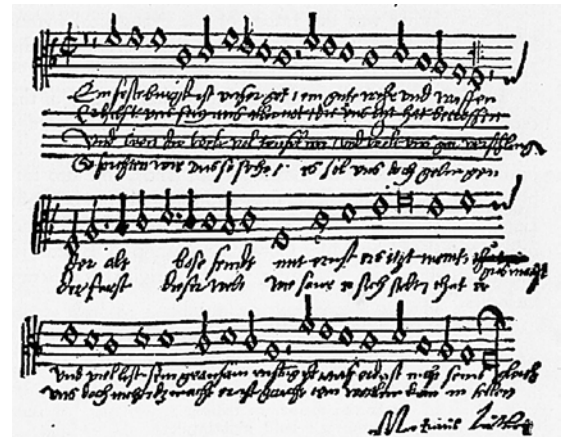 Ein feste burgk ist unser got ein gute wehr und waffen
Er hilft uns frey aus not die uns itzt hat betroffen
Und wenn die welt vol teufel wer und wolt uns gar verschling
So furchten wir uns so sehr es sol uns doch gelingen
der alt bose feindt mit ernst ers itzt meint
der furst dieser welt wie saur er sich stelt
und viel list sein grausam rustung ist auf erd ist nicht seins gleich
uns doch nicht das macht er ist gericht ein wortlin kan in fellen
Martinus Luther